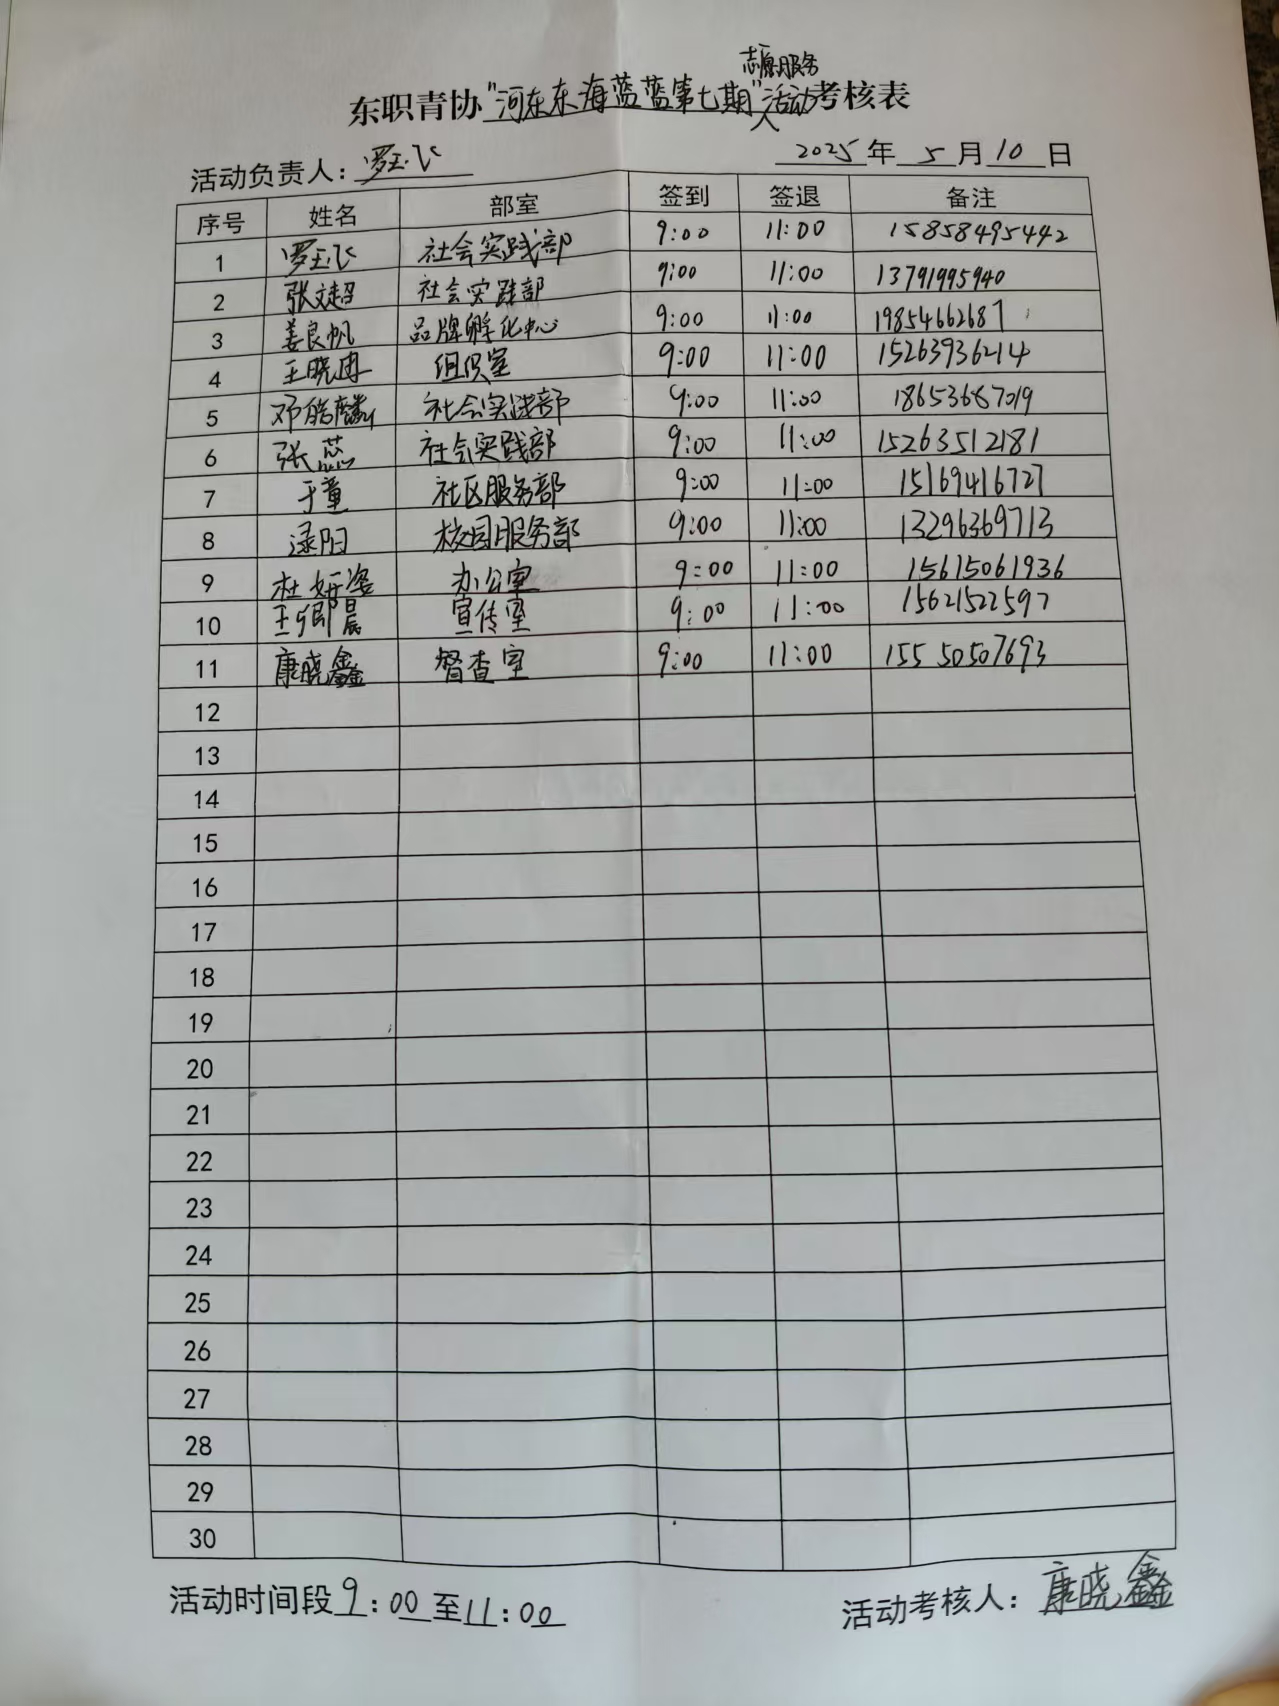 志愿服务
东职青协"河东东海蓝蓝第七期"活动考核表
活动负责人：罗玉飞 2025年5月10日
序号 姓名 部室 签到 签退 备注
1 罗玉飞 社会实践部 9:00 11:00 15858495442
2 张文超 社会实践部 9:00 11:00 13791995940
3 姜良帆 品牌孵化中心 9:00 11:00 19854662687
4 王晓冉 组织室 9:00 11:00 15263936214
5 邓皓麟 社会实践部 9:00 11:00 18653687019
6 张蕊 社会实践部 9:00 11:00 15263512181
7 于童 社区服务部 9:00 11:00 15169416727
8 渌阳 校园服务部 9:00 11:00 13296369713
9 杜妍姿 办公室 9:00 11:00 15615061936
10 王卿晨 宣传室 9:00 11:00 15621522597
11 康晓鑫 督查室 9:00 11:00 15550507693
12
13
14
15
16
17
18
19
20
21
22
23
24
25
26
27
28
29
30
活动时间段9:00至11:00 活动考核人：康晓鑫